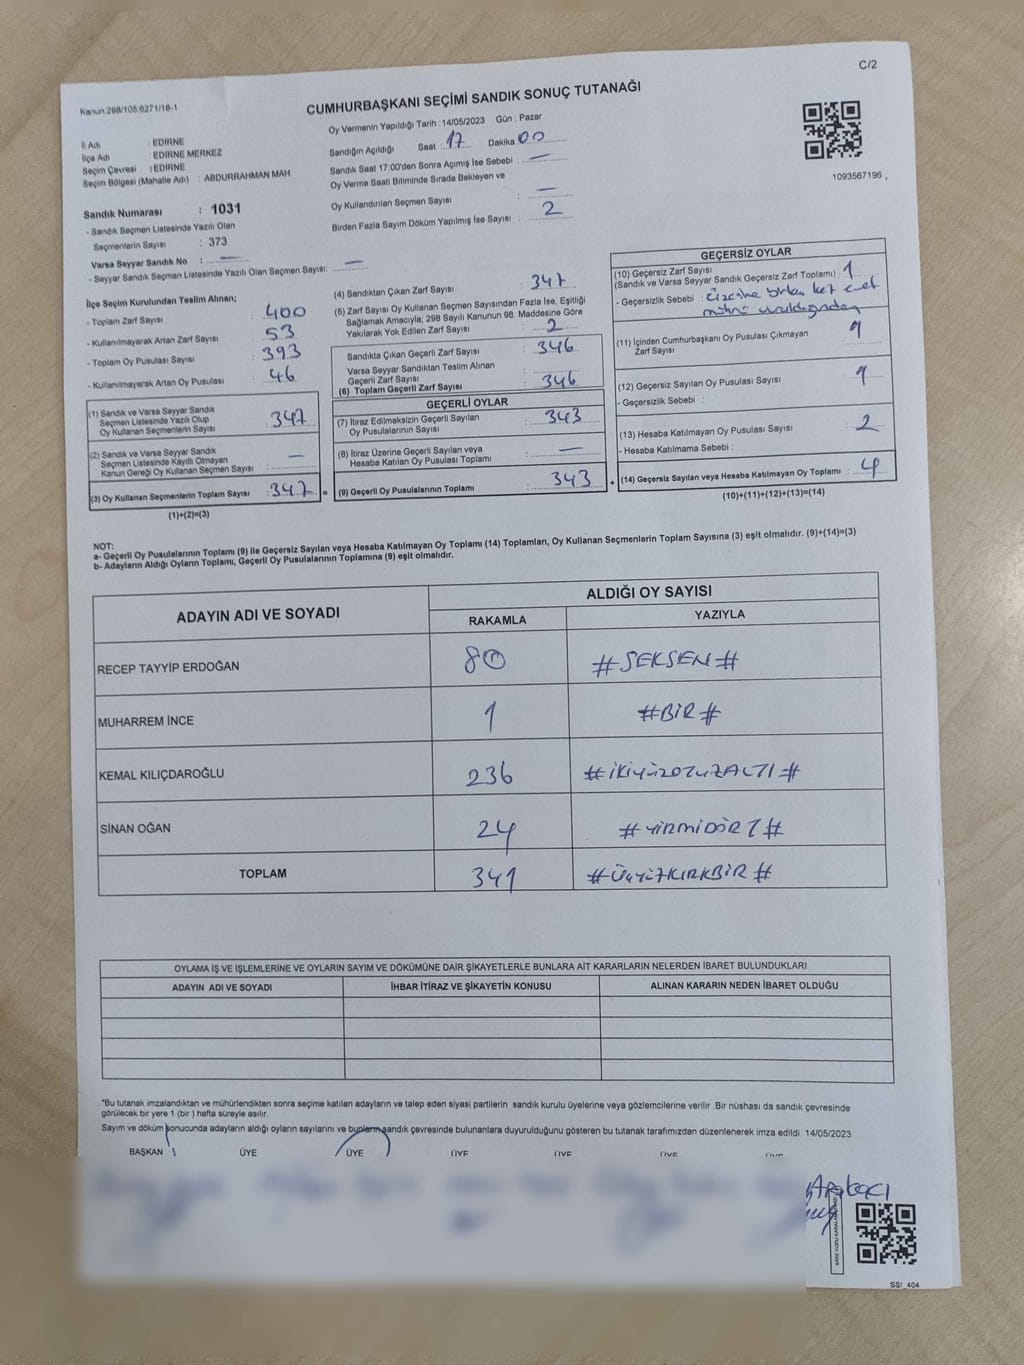 C/2
Kanun:298/106.6271/18-1
CUMHURBAŞKANI SEÇİMİ SANDIK SONUÇ TUTANAĞI
Oy Vermenin Yapıldığı Tarih : 14/05/2023 Gün : Pazar
İl Adı : EDİRNE
İlçe Adı : EDİRNE MERKEZ
Seçim Çevresi : EDİRNE
Seçim Bölgesi (Mahalle Adı) : ABDURRAHMAN MAH.
Sandığın Açıldığı Saat : 17 Dakika : 00
Sandık Saat 17:00'den Sonra Açımış İse Sebebi : —
Oy Verme Saati Bitiminde Sırada Bekleyen ve
Oy Kullandırılan Seçmen Sayısı : —
Birden Fazla Sayım Döküm Yapılmış İse Sayısı : 2
1093567196
Sandık Numarası : 1031
- Sandık Seçmen Listesinde Yazılı Olan
Seçmenlerin Sayısı : 373
Varsa Seyyar Sandık No : —
- Seyyar Sandık Seçmen Listesinde Yazılı Olan Seçmen Sayısı: —
İlçe Seçim Kurulundan Teslim Alınan;
- Toplam Zarf Sayısı : 400
- Kullanılmayarak Artan Zarf Sayısı : 53
- Toplam Oy Pusulası Sayısı : 393
- Kullanılmayarak Artan Oy Pusulası : 46
(1) Sandık ve Varsa Seyyar Sandık
Seçmen Listesinde Yazılı Olup
Oy Kullanan Seçmenlerin Sayısı : 347
(2) Sandık ve Varsa Seyyar Sandık
Seçmen Listesinde Kayıtlı Olmayan
Kanun Gereği Oy Kullanan Seçmen Sayısı : —
(3) Oy Kullanan Seçmenlerin Toplam Sayısı : 347 =
(1)+(2)=(3)
(4) Sandıktan Çıkan Zarf Sayısı : 347
(5) Zarf Sayısı Oy Kullanan Seçmen Sayısından Fazla İse, Eşitliği
Sağlamak Amacıyla, 298 Sayılı Kanunun 98. Maddesine Göre
Yakılarak Yok Edilen Zarf Sayısı : 2
Sandıkta Çıkan Geçerli Zarf Sayısı : 346
Varsa Seyyar Sandıktan Teslim Alınan
Geçerli Zarf Sayısı :
(6) Toplam Geçerli Zarf Sayısı : 346
GEÇERLİ OYLAR
(7) İtiraz Edilmeksizin Geçerli Sayılan
Oy Pusulalarının Sayısı : 343
(8) İtiraz Üzerine Geçerli Sayılan veya
Hesaba Katılan Oy Pusulası Toplamı : —
(9) Geçerli Oy Pusulalarının Toplamı : 343 +
GEÇERSİZ OYLAR
(10) Geçersiz Zarf Sayısı
(Sandık ve Varsa Seyyar Sandık Geçersiz Zarf Toplamı) : 1
- Geçersizlik Sebebi : üzerine birkaç kez evet
mührü vurulduğundan
(11) İçinden Cumhurbaşkanı Oy Pusulası Çıkmayan
Zarf Sayısı : 1
(12) Geçersiz Sayılan Oy Pusulası Sayısı : 1
- Geçersizlik Sebebi :
(13) Hesaba Katılmayan Oy Pusulası Sayısı : 2
- Hesaba Katılmama Sebebi :
(14) Geçersiz Sayılan veya Hesaba Katılmayan Oy Toplamı : 4
(10)+(11)+(12)+(13)=(14)
NOT:
a- Geçerli Oy Pusulalarının Toplamı (9) ile Geçersiz Sayılan veya Hesaba Katılmayan Oy Toplamı (14) Toplamları, Oy Kullanan Seçmenlerin Toplam Sayısına (3) eşit olmalıdır. (9)+(14)=(3)
b- Adayların Aldığı Oyların Toplamı, Geçerli Oy Pusulalarının Toplamına (9) eşit olmalıdır.
ADAYIN ADI VE SOYADI ALDIĞI OY SAYISI
RAKAMLA YAZIYLA
RECEP TAYYİP ERDOĞAN 80 #SEKSEN#
MUHARREM İNCE 1 #BİR#
KEMAL KILIÇDAROĞLU 236 #İKİYÜZOTUZALTI#
SİNAN OĞAN 24 #YİRMİDÖRT#
TOPLAM 341 #ÜÇYÜZKIRKBİR#
OYLAMA İŞ VE İŞLEMLERİNE VE OYLARIN SAYIM VE DÖKÜMÜNE DAİR ŞİKAYETLERLE BUNLARA AİT KARARLARIN NELERDEN İBARET BULUNDUKLARI
ADAYIN ADI VE SOYADI İHBAR İTİRAZ VE ŞİKAYETİN KONUSU ALINAN KARARIN NEDEN İBARET OLDUĞU
*Bu tutanak imzalandıktan ve mühürlendikten sonra seçime katılan adayların ve talep eden siyasi partilerin sandık kurulu üyelerine veya gözlemcilerine verilir .Bir nüshası da sandık çevresinde
görülecek bir yere 1 (bir ) hafta süreyle asılır.
Sayım ve döküm sonucunda adayların aldığı oyların sayılarını ve bunların sandık çevresinde bulunanlara duyurulduğunu gösteren bu tutanak tarafımızdan düzenlenerek imza edildi. 14/05/2023
BAŞKAN ÜYE ÜYE ÜYE ÜYE ÜYE ÜYE
SS!_404